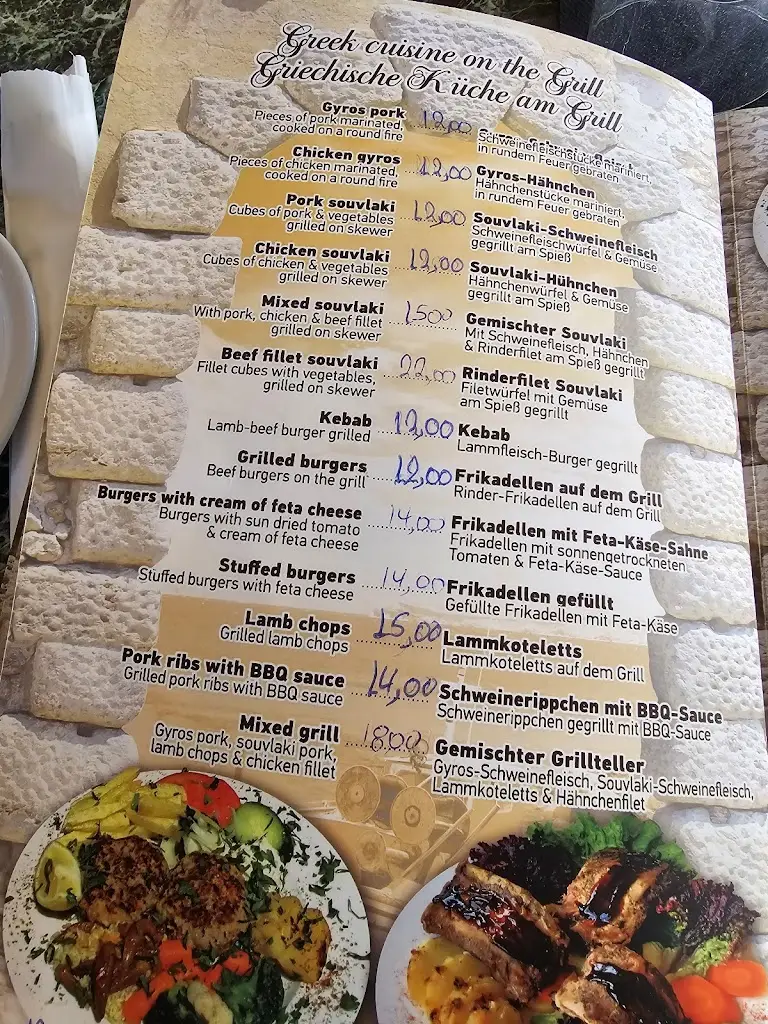 Greek cuisine on the Grill
Griechische Küche am Grill
Gyros pork 12,00
Pieces of pork marinated,
cooked on a round fire
Schweinefleischstücke mariniert,
in rundem Feuer gebraten
Chicken gyros 12,00 Gyros-Hähnchen
Pieces of chicken marinated,
cooked on a round fire
Hähnchenstücke mariniert,
in rundem Feuer gebraten
Pork souvlaki 12,00 Souvlaki-Schweinefleisch
Cubes of pork & vegetables
grilled on skewer
Schweinefleischwürfel & Gemüse
gegrillt am Spieß
Chicken souvlaki 12,00 Souvlaki-Hühnchen
Cubes of chicken & vegetables
grilled on skewer
Hähnchenwürfel & Gemüse
gegrillt am Spieß
Mixed souvlaki 1500 Gemischter Souvlaki
With pork, chicken & beef fillet
grilled on skewer
Mit Schweinefleisch, Hähnchen
& Rinderfilet am Spieß gegrillt
Beef fillet souvlaki 22,00 Rinderfilet Souvlaki
Fillet cubes with vegetables,
grilled on skewer
Filetwürfel mit Gemüse
am Spieß gegrillt
Kebab 12,00 Kebab
Lamb-beef burger grilled
Lammfleisch-Burger gegrillt
Grilled burgers 12,00 Frikadellen auf dem Grill
Beef burgers on the grill
Rinder-Frikadellen auf dem Grill
Burgers with cream of feta cheese 14,00 Frikadellen mit Feta-Käse-Sahne
Burgers with sun dried tomato
& cream of feta cheese
Frikadellen mit sonnengetrockneten
Tomaten & Feta-Käse-Sauce
Stuffed burgers 14,00 Frikadellen gefüllt
Stuffed burgers with feta cheese
Gefüllte Frikadellen mit Feta-Käse
Lamb chops 15,00 Lammkoteletts
Grilled lamb chops
Lammkoteletts auf dem Grill
Pork ribs with BBQ sauce 14,00 Schweinerippchen mit BBQ-Sauce
Grilled pork ribs with BBQ sauce
Schweinerippchen gegrillt mit BBQ-Sauce
Mixed grill 1800 Gemischter Grillteller
Gyros pork, souvlaki pork,
lamb chops & chicken fillet
Gyros-Schweinefleisch, Souvlaki-Schweinefleisch,
Lammkoteletts & Hähnchenfilet